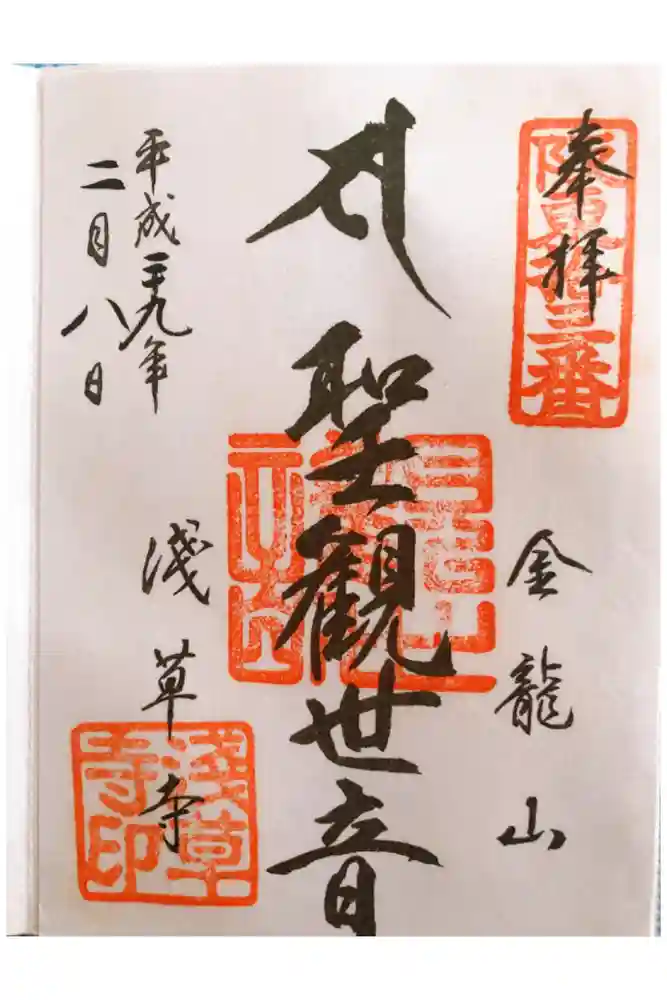 奉拝
阪東拾三番
金龍山
聖観世音
淺草寺
淺草寺印
平成二十九年
二月八日